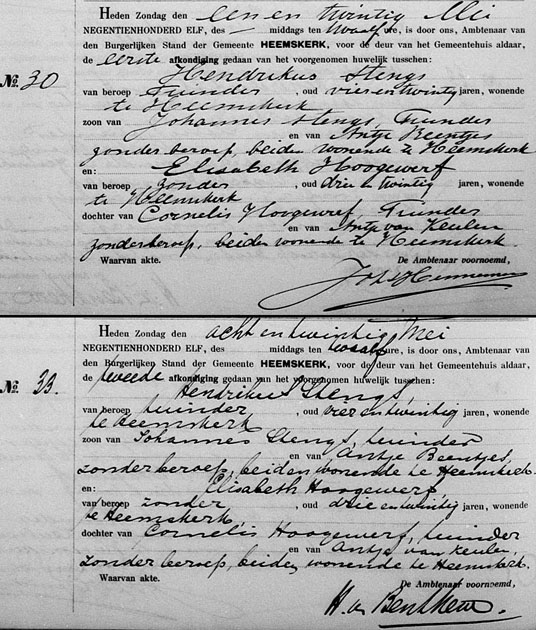 Heden Zondag den een en twintig Mei
NEGENTIENHONDERD ELF, des — middags ten twaalf ure, is door ons, Ambtenaar van
den Burgerlijken Stand der Gemeente HEEMSKERK, voor de deur van het Gemeentehuis aldaar,
de eerste afkondiging gedaan van het voorgenomen huwelijk tusschen:
No. 30 Hendrikus Stengs
van beroep Tuinder, oud vier en twintig jaren, wonende
te Heemskerk
zoon van Johannes Stengs, Tuinder
en van Antje Beentjes
zonder beroep, beiden wonende te Heemskerk
en: Elisabeth Hoogewerf
van beroep zonder, oud drie en twintig jaren, wonende
te Heemskerk
dochter van Cornelis Hoogewerf, Tuinder
en van Antje van Keulen
zonder beroep, beiden wonende te Heemskerk.
Waarvan akte. De Ambtenaar voornoemd,
Heden Zondag den acht en twintig Mei
NEGENTIENHONDERD ELF, des middags ten twaalf ure, is door ons, Ambtenaar van
den Burgerlijken Stand der Gemeente HEEMSKERK, voor de deur van het Gemeentehuis aldaar,
de tweede afkondiging gedaan van het voorgenomen huwelijk tusschen:
No. 33. Hendrikus Stengs,
van beroep tuinder, oud vier en twintig jaren, wonende
te Heemskerk
zoon van Johannes Stengs, tuinder
en van Antje Beentjes,
zonder beroep, beiden wonende te Heemskerk
en: Elisabeth Hoogewerf,
van beroep zonder, oud drie en twintig jaren, wonende
te Heemskerk,
dochter van Cornelis Hoogewerf, tuinder
en van Antje van Keulen,
zonder beroep, beiden wonende te Heemskerk.
Waarvan akte. De Ambtenaar voornoemd,